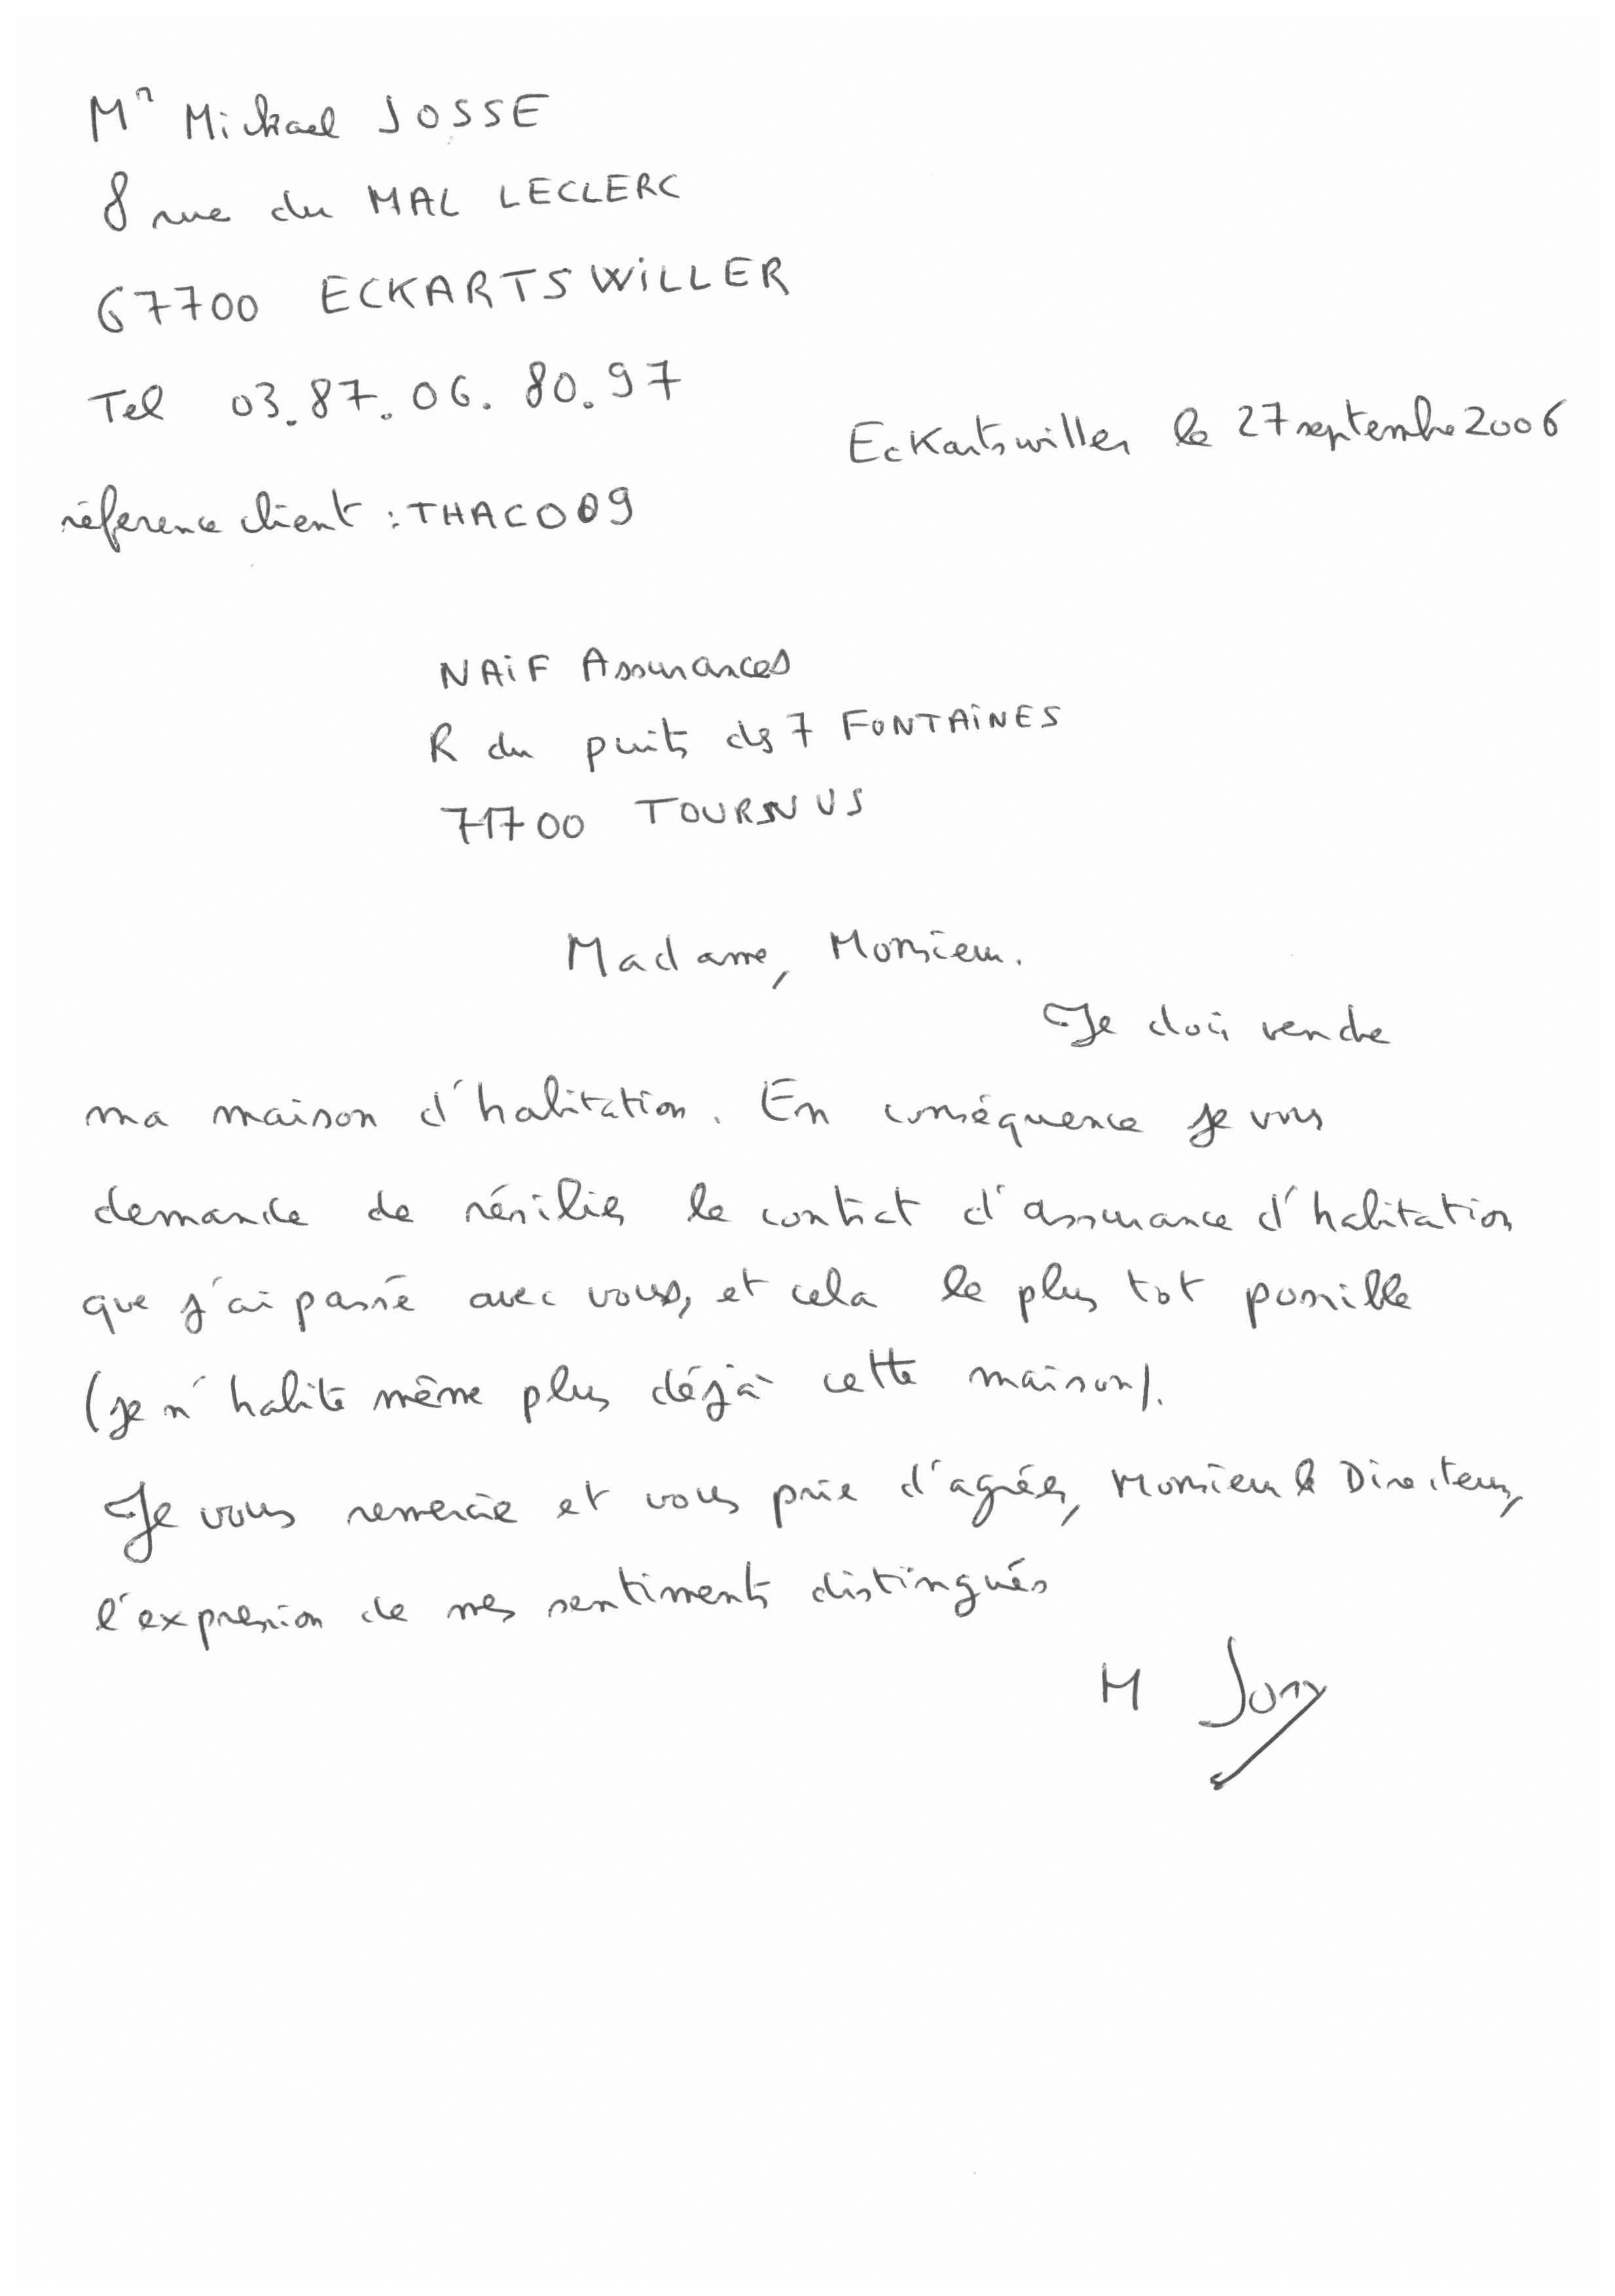 Mr Mickael JOSSE
8 rue du MAL LECLERC
67700 ECKARTSWILLER
Tel 03.87.06.80.97
Eckartswiller le 27 septembre 2006
référence client : THACO09
NAiF Assurances
R du puits des 7 FONTAiNES
71700 TOURNUS
Madame, Monsieur.
Je dois vendre
ma maison d'habitation. En conséquence je vous
demande de résilier le contrat d'assurance d'habitation
que j'ai passé avec vous, et cela le plus tot possible
(je n'habite même plus déjà cette maison).
Je vous remercie et vous prie d'agréer, Monsieur le Directeur,
l'expression de mes sentiments distingués
M